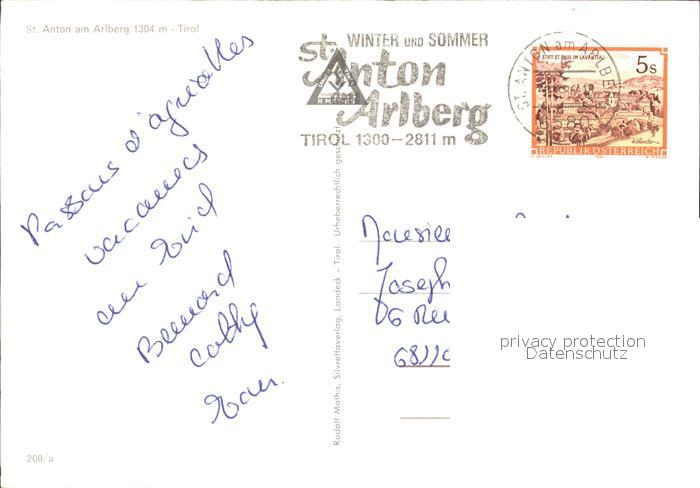 St. Anton am Arlberg 1304 m - Tirol
WINTER UND SOMMER
St. Anton
am
Arlberg
TIROL 1300-2811 m
R. MATHIS
ST. ANTON am ARLBE
STIFT ST. PAUL IM LAVANTTAL
5 S
REPUBLIK ÖSTERREICH
Passons d'agréables
vacances
au Tirol
Bernard
Cathy
Monsieu
Joseph
6 Rue
68110
privacy protection
Datenschutz
Rudolf Mathis, Silvrettaverlag, Landeck - Tirol. Urheberrechtlich geschützt
208/a